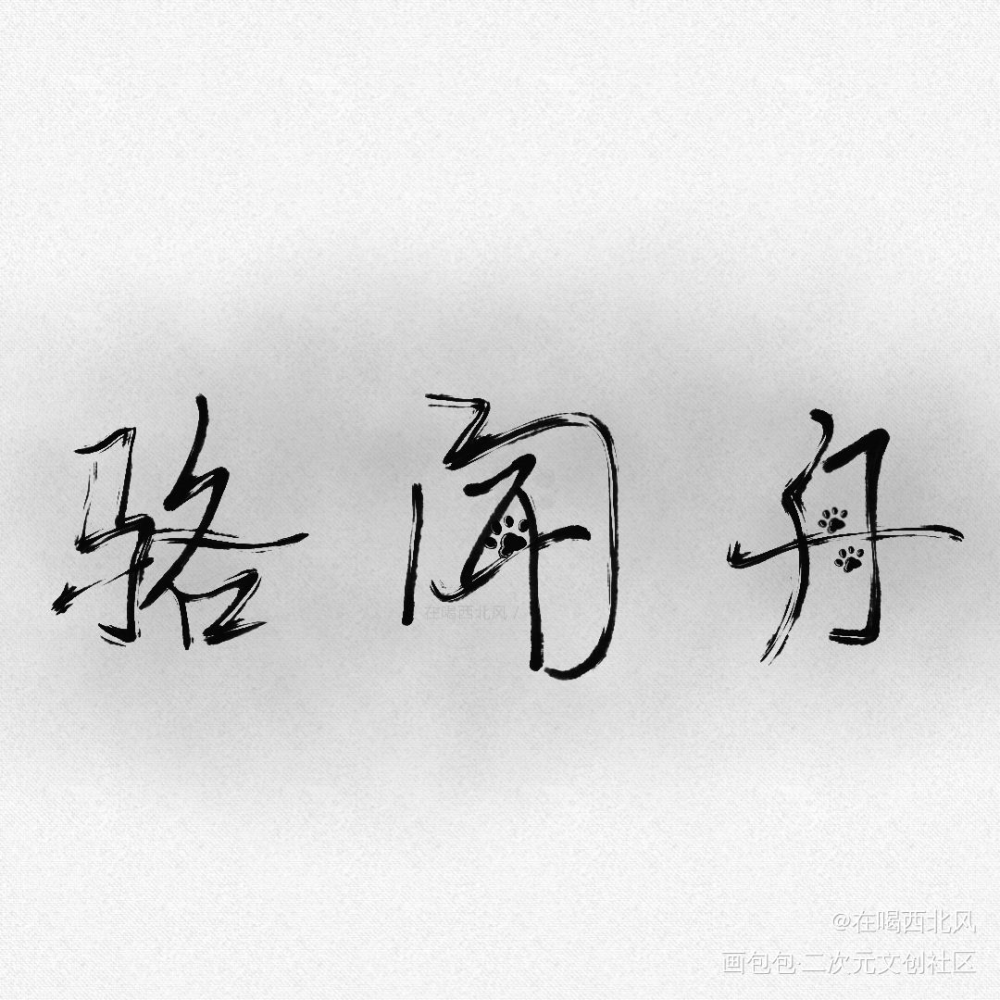 骆闻舟
在喝西北风
@在喝西北风
画包包·二次元文创社区